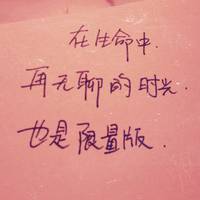 在生命中.
再无聊的时光.
也是限量版.